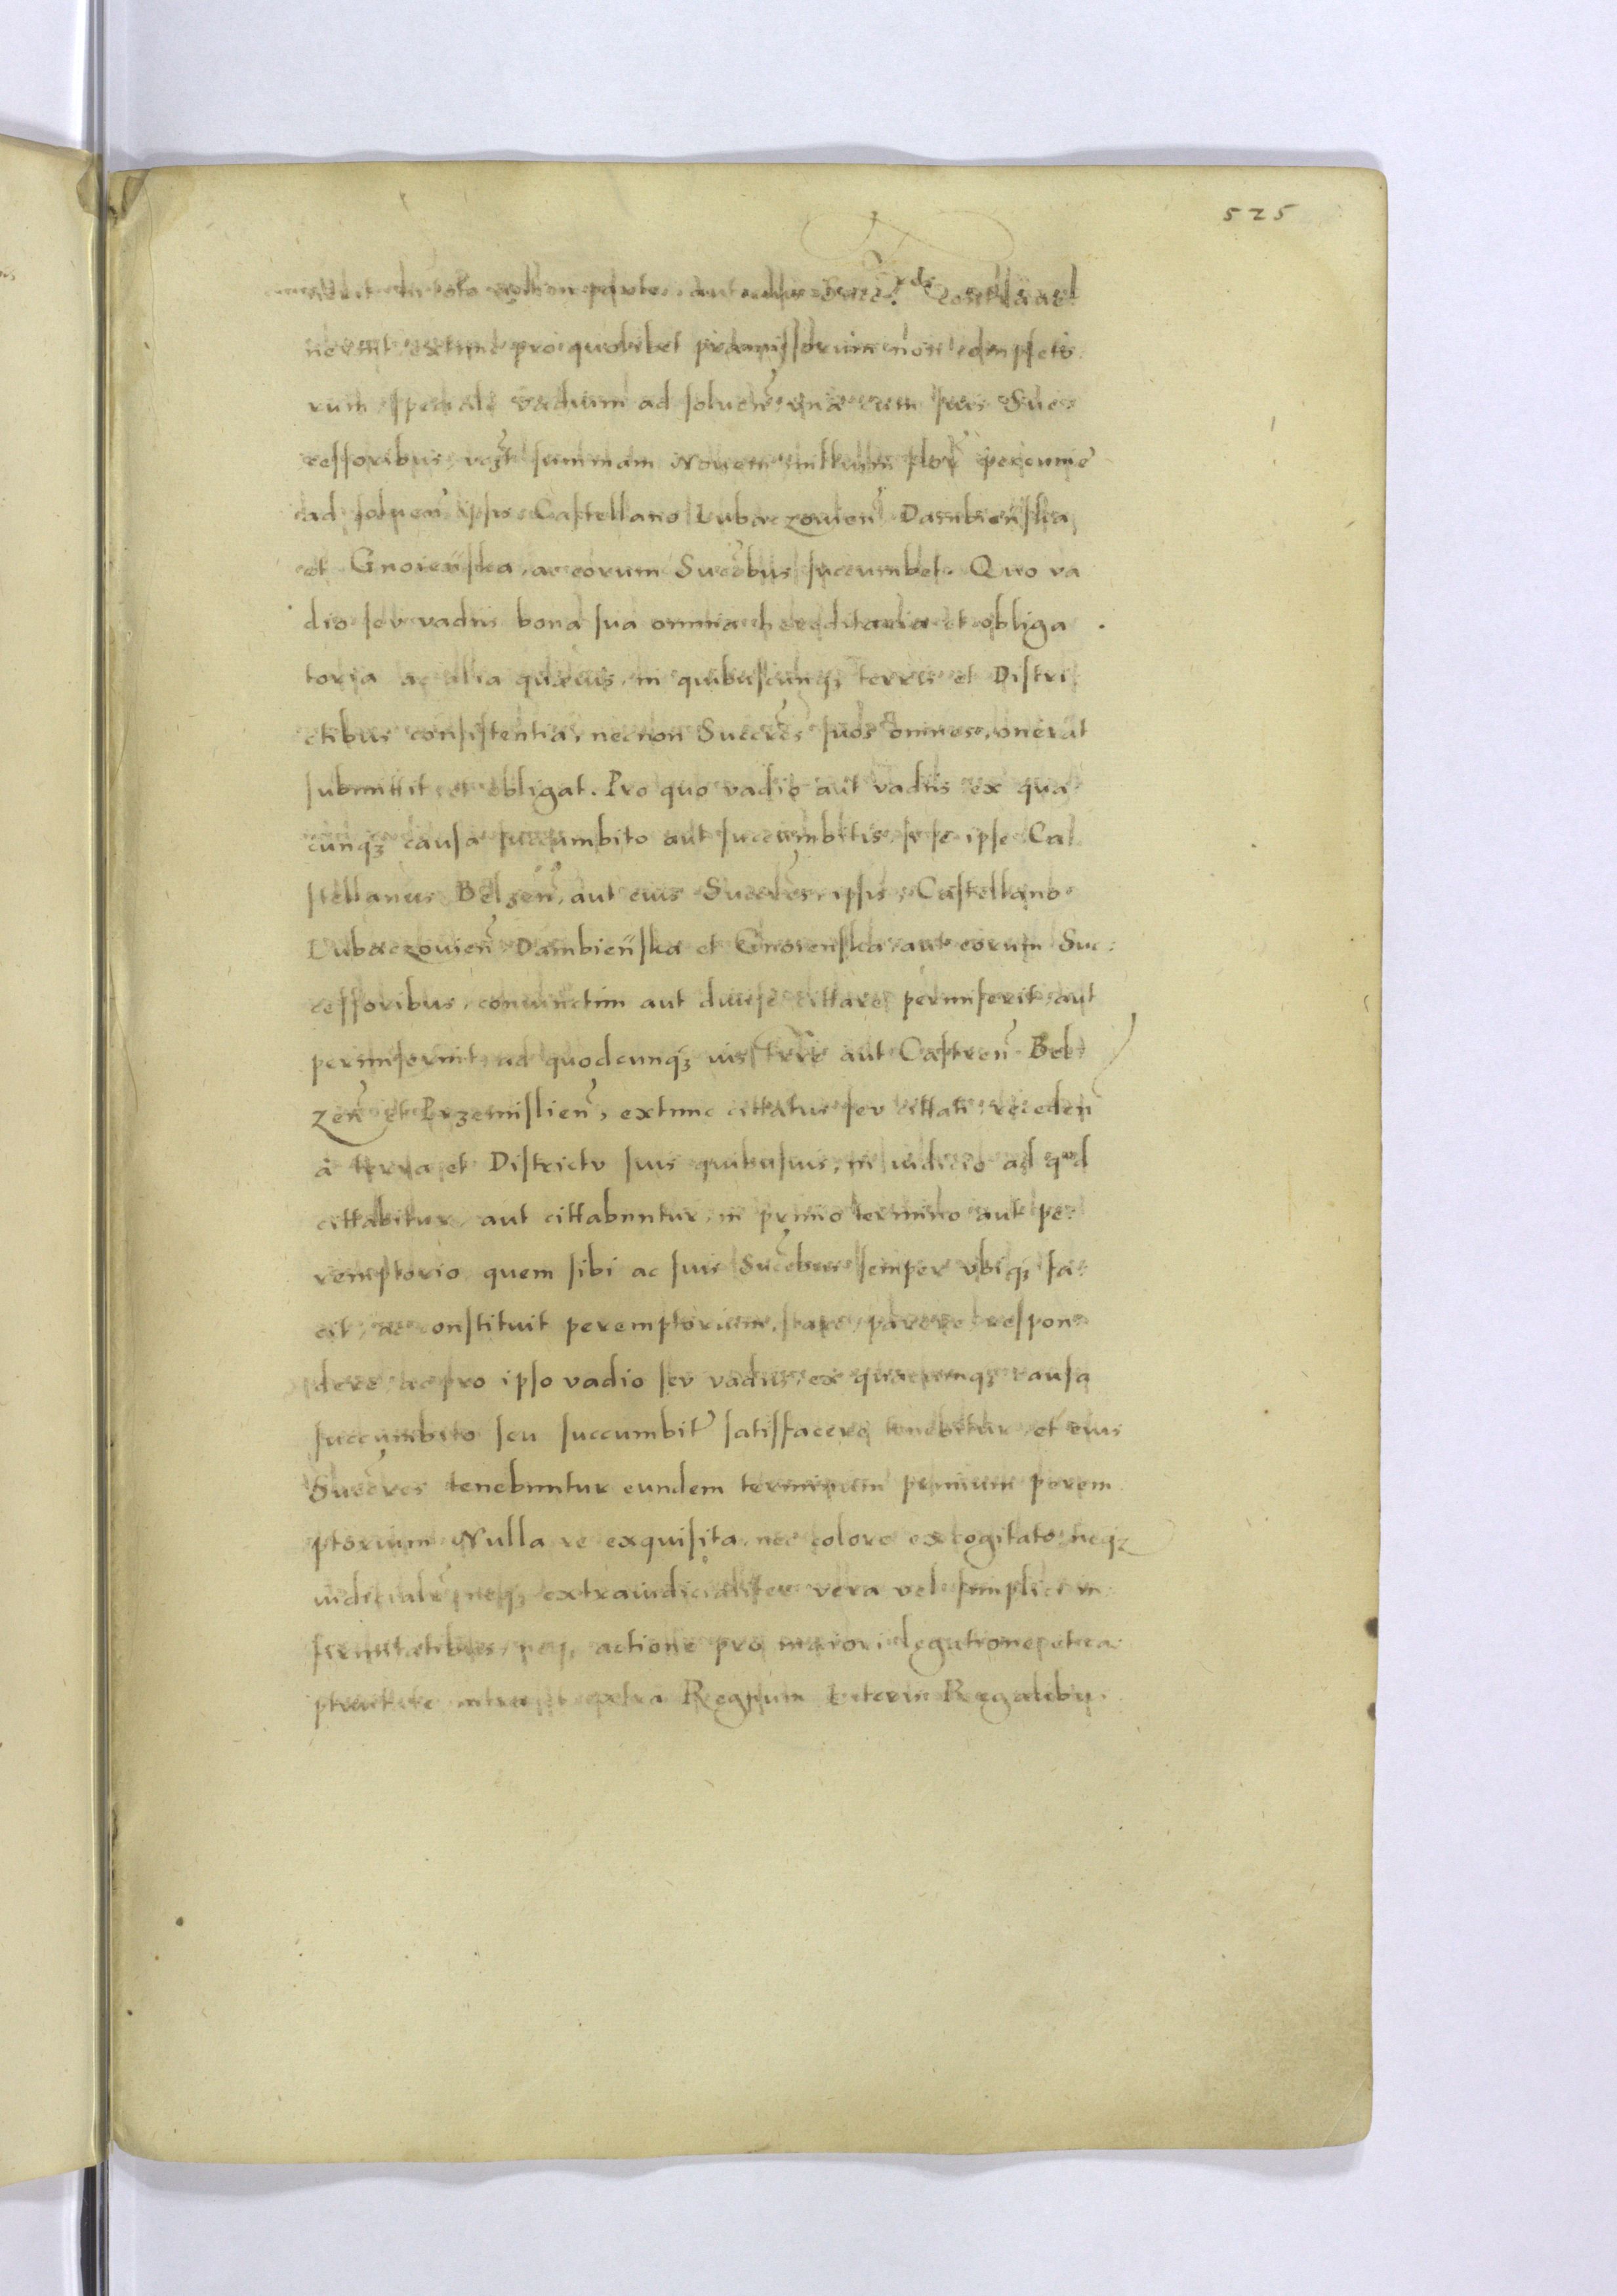 525
in toto vel in parte aut
nerint extunc pro quolibet præmissorum non completo
rum speciali vadium ad soluen̄ vna cum suis Suc
cessoribus, vczt summam Nouem millium flor pecunie
ad soluen̄ ipsis Castellano Lubaczouien̄ Dambieńska
et Gnoieńska, ac eorum Succ̄bus succumbet. Quo va
dio seu vadiis bona sua omnia hereditaria et obliga
toria ac alia quæuis, in quibuscunq3 terris et Distri
ctibus consistentia, necnon Succr̄es suos omnes, onerat
submittit et obligat. Pro quo vadio aut vadiis ex qua
cunq3 causa succumbito aut succumbitis, si se ipse Ca
stellanus Belzen̄, aut eius Succr̄es, ipsis Castellano
Lubaczouien̄ Dambieńska et Gnoienska aut eorum Suc:
cessoribus, coniunctim aut diuise cittare permiserit, aut
permiserint, ad quodcunq3 ius trr̄e aut Castren̄ Bel
zen̄ et Przemislien̄, extunc cittatus seu cittati, receden̄
à terra et Districtu suis quibusuis, in iudicio ad qod
cittabitur, aut cittabuntur, in primo termino aut pe:
remptorio quem sibi ac suis Succ̄bus semper vbiq3 fa:
cit, ac constituit peremptorium, stare, parere, respon:
dere, ac pro ipso vadio seu vadiis, ex quacunq3 causa
succumbito seu succumbit̄ satisfacere tenebitur, et eius
Succr̄es tenebuntur eundem terminum primum perem
ptorium Nulla re exquisita, nec colore excogitato neq3
iudicialr̄ neq3 extraiudicialiter vera vel simplici in
firmitatibus, neq3 actione pro maiori legatione
intra et extra Regnum Literis Regalibu.